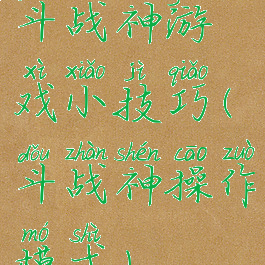 斗战神游
xì xiǎo jì qiǎo
戏小技巧(
dǒu zhàn shén cāo zuò
斗战神操作
mó shì
模式)